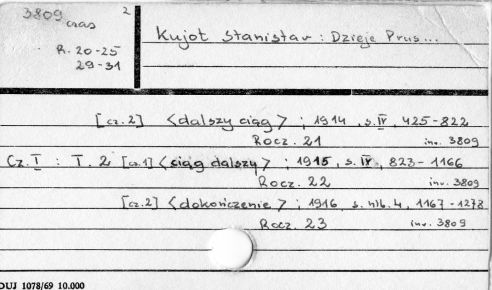 3809 czas 2
R. 20-25
29-31
Kujot Stanisław : Dzieje Prus...
[cz.2] <dalszy ciąg> ; 1914, s. IV, 425-822
Rocz. 21 inw. 3809
Cz. I : T. 2 [cz.1] <ciąg dalszy> ; 1915, s. IV, 823-1166
Rocz. 22 inw. 3809
[cz.2] <dokończenie> ; 1916, s. nlb. 4, 1167-1278
Rocz. 23 inw. 3809
DUJ 1078/69 10.000